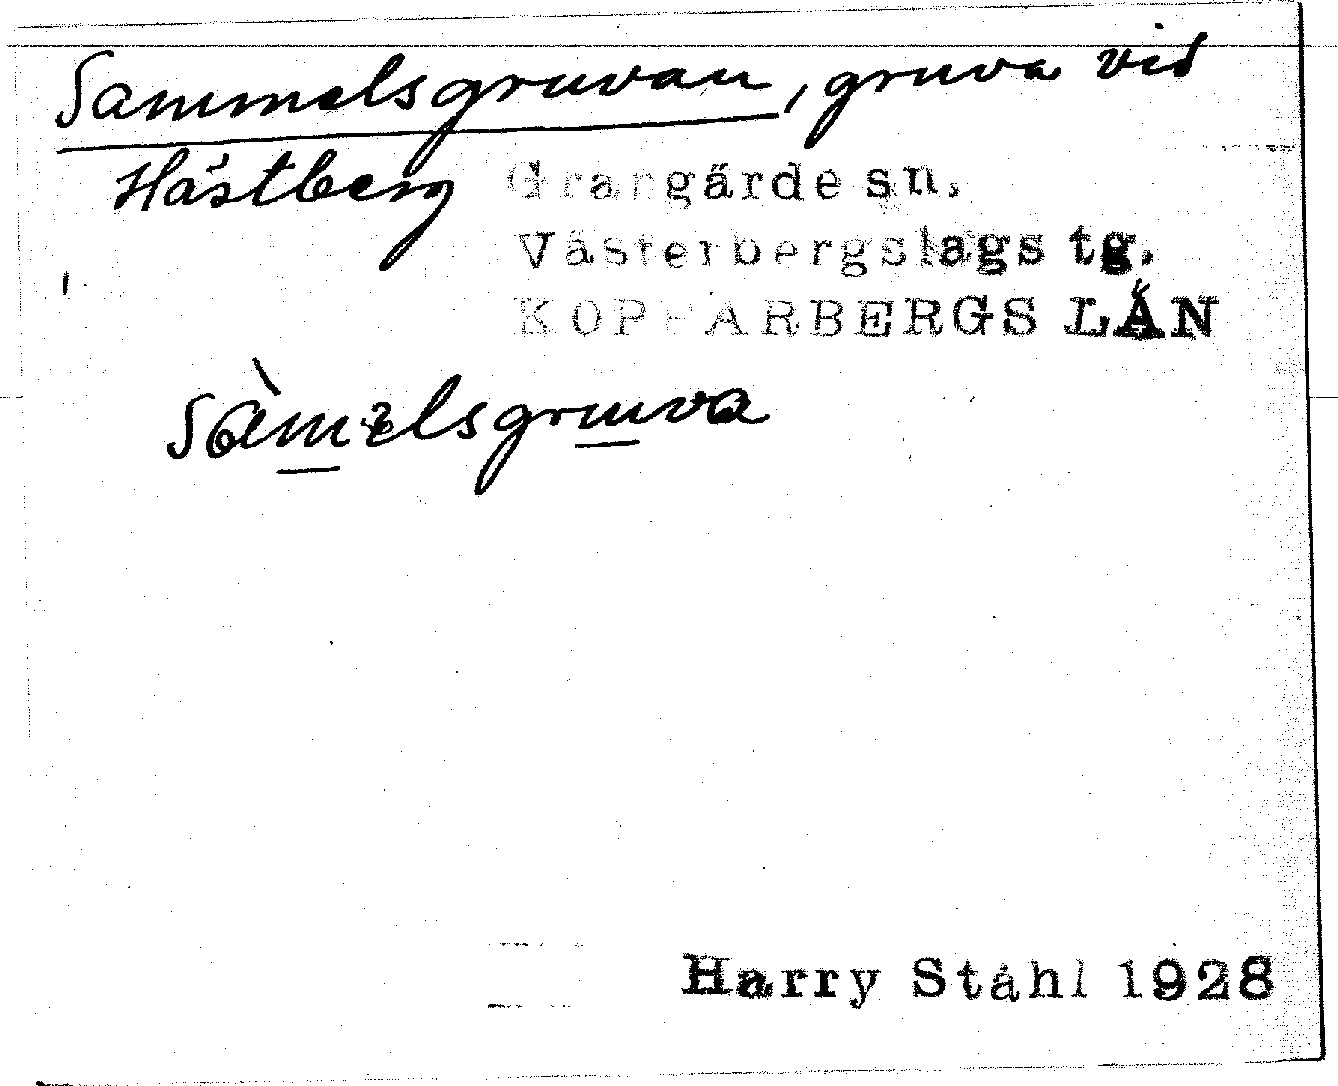 Sammelsgruvan, gruva vid
Hästberg Grangärde sn.
Västerbergslags tg.
KOPPARBERGS LÄN
Sàmelsgruva
Harry Ståhl 1928